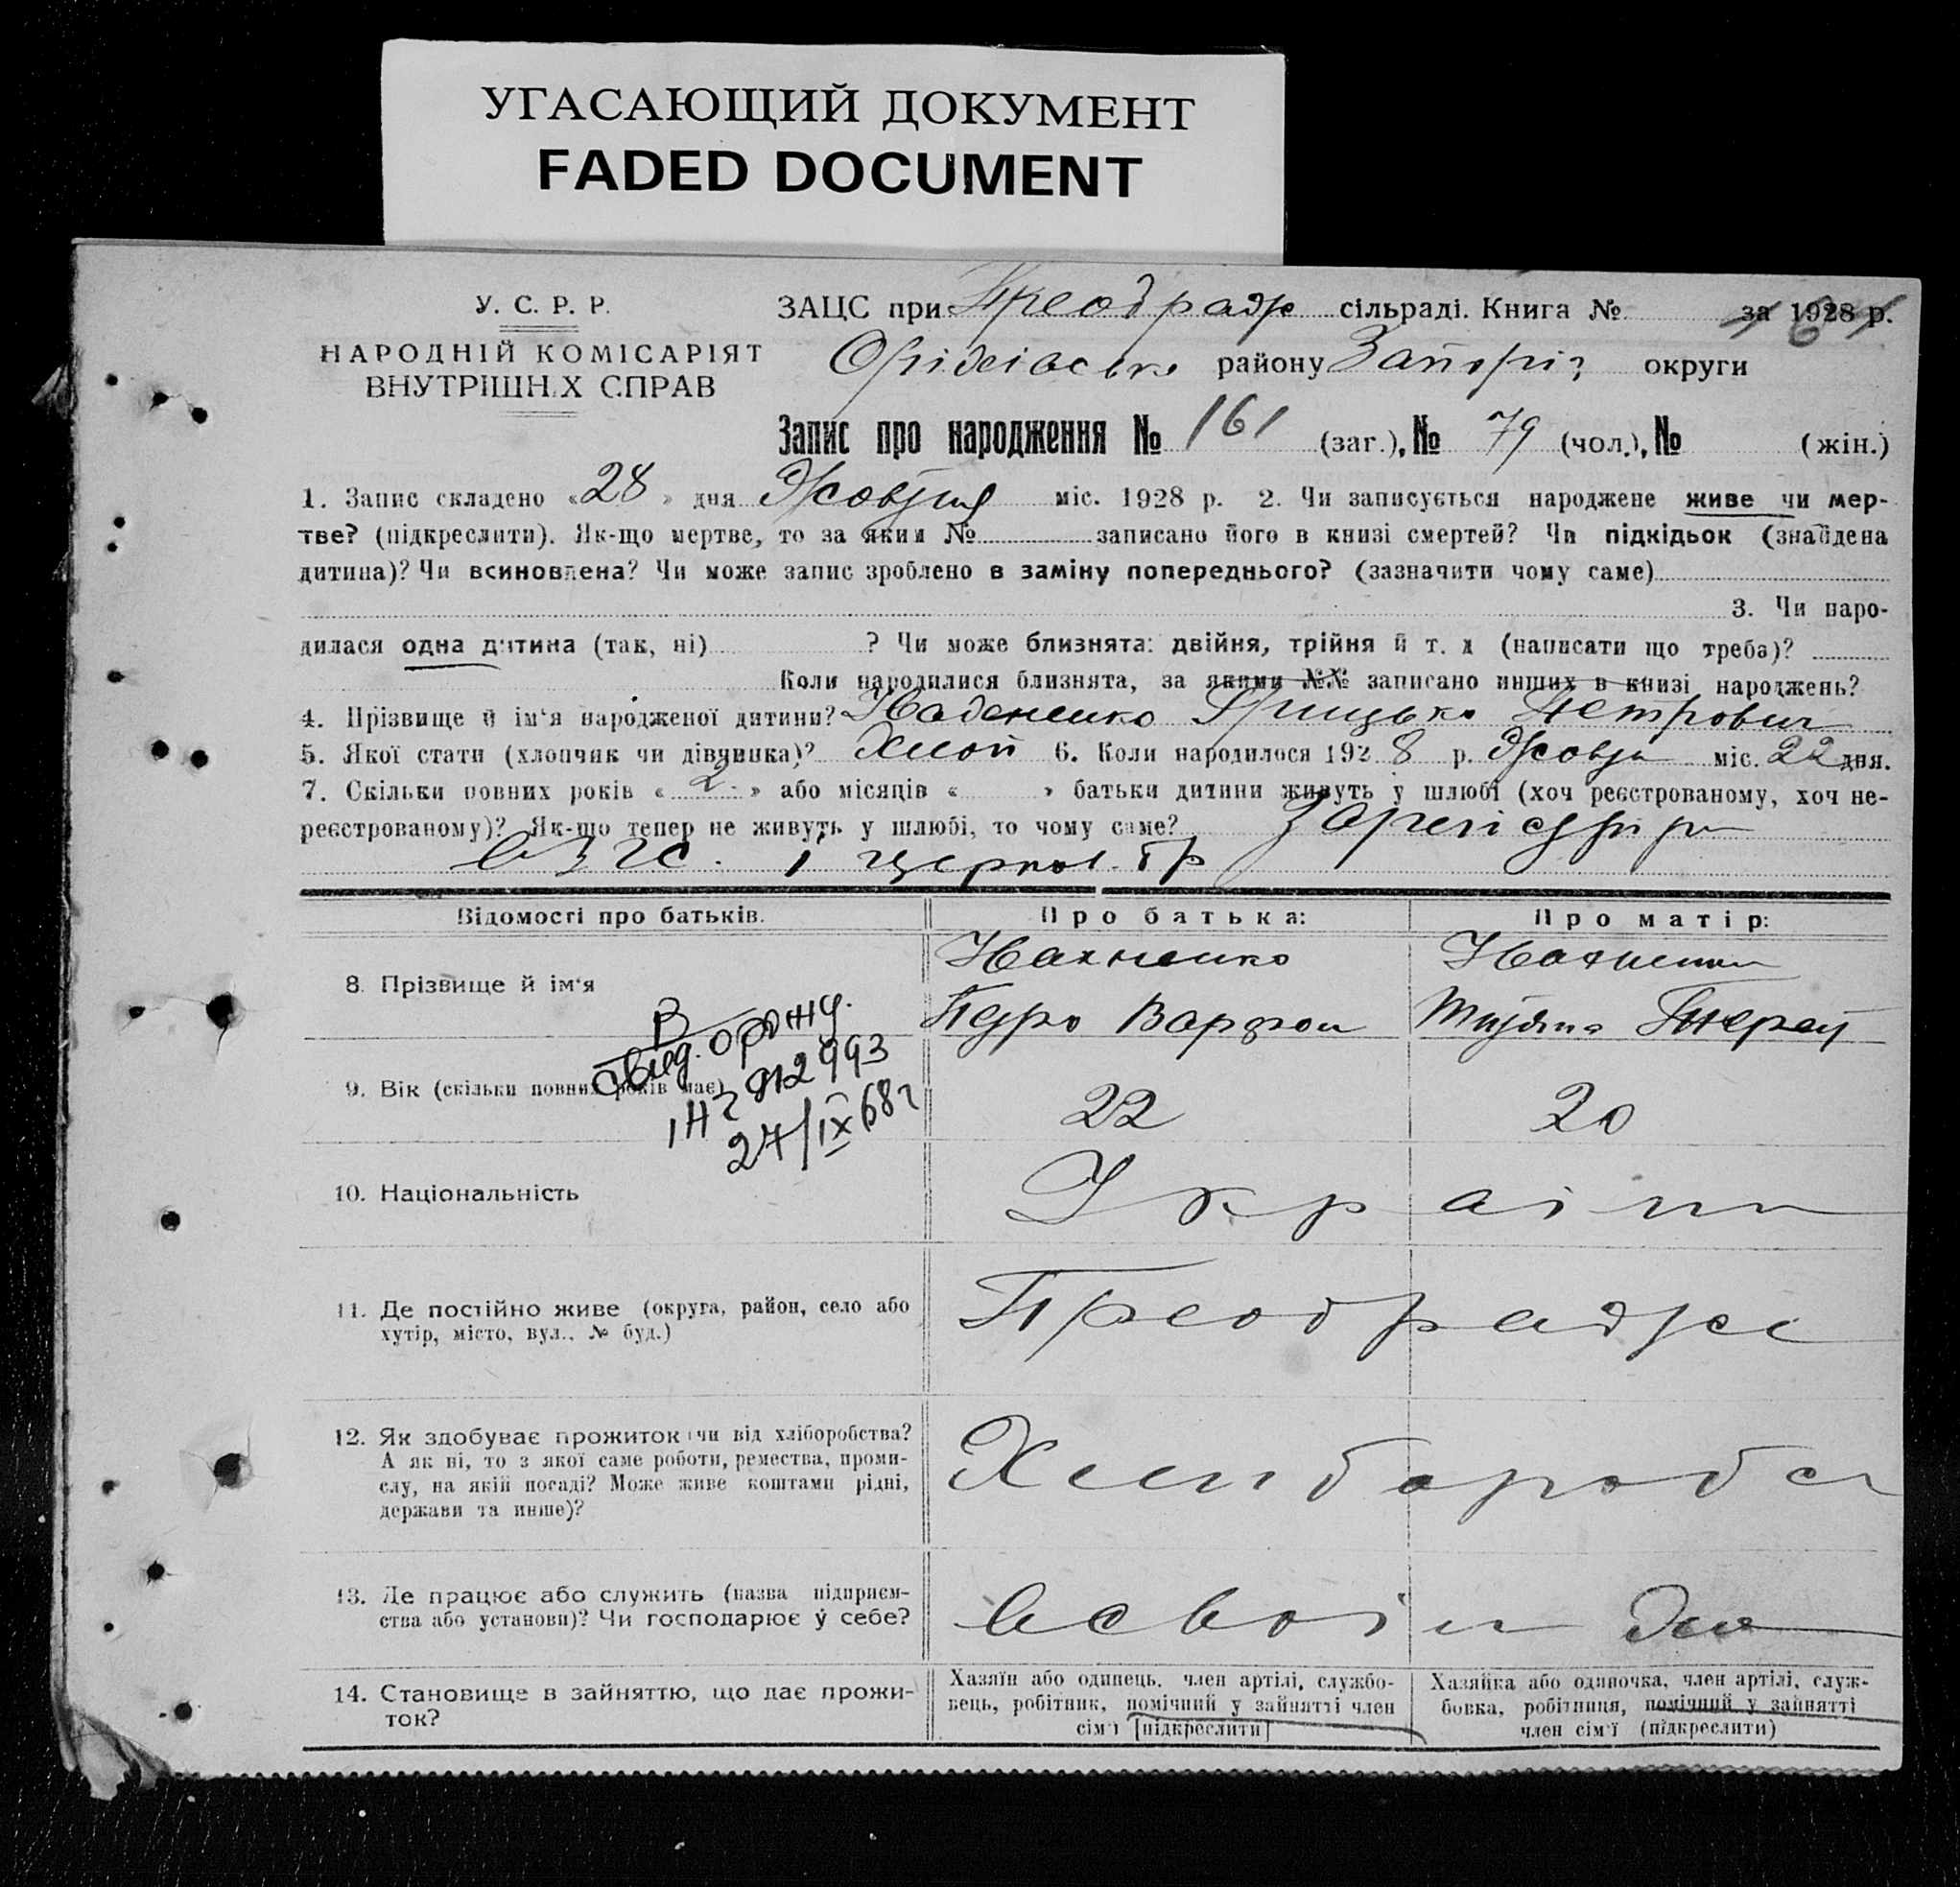 УГАСАЮЩИЙ ДОКУМЕНТ
FADED DOCUMENT
У. С. Р. Р.
НАРОДНІЙ КОМІСАРІЯТ
ВНУТРІШН.Х СПРАВ
ЗАЦС при Преображ сільраді. Книга № за 1928 р.
Оріхівсько району Запоріз округи
Запис про народження № 161 (заг.), № 79 (чол.), № (жін.)
1. Запис складено «28» дня Жовтня міс. 1928 р. 2. Чи записується народжене живе чи мер-
тве? (підкреслити). Як-що мертве, то за яким № записано його в книзі смертей? Чи підкідьок (знайдена
дитина)? Чи всиновлена? Чи може запис зроблено в заміну попереднього? (зазначити чому саме)
3. Чи наро-
дилася одна дитина (так, ні) ? Чи може близнята: двійня, трійня й т. д (написати що треба)?
Коли народилися близнята, за якими №№ записано инших в книзі народжень?
4. Прізвище й ім'я народженої дитини? Грицько Петрович
5. Якої стати (хлопчик чи дівчинка)? 6. Коли народилося 1928 р. Жовтн міс. 22 дня.
7. Скільки повних років «2» або місяців « » батьки дитини живуть у шлюбі (хоч реєстрованому, хоч не-
реєстрованому)? Як-що тепер не живуть у шлюбі, то чому саме?
Відомості про батьків.
Про батька:
Про матір:
8. Прізвище й ім'я
Петро
9. Вік (скільки повних років має)
22
20
27/IX 68г
10. Національність
Україн
11. Де постійно живе (округа, район, село або
хутір, місто, вул., № буд.)
Преображе
12. Як здобуває прожиток (чи від хліборобства?
А як ні, то з якої саме роботи, ремества, проми-
слу, на якій посаді? Може живе коштами рідні,
держави та инше)?
13. Де працює або служить (назва підприєм-
ства або установи)? Чи господарює у себе?
14. Становище в зайняттю, що дає прожи-
ток?
Хазяїн або одинець, член артілі, службо-
вець, робітник, помічний у зайнятті член
сім'ї (підкреслити)
Хазяйка або одиночка, член артілі, служ-
бовка, робітниця, помічний у зайнятті
член сім'ї (підкреслити)